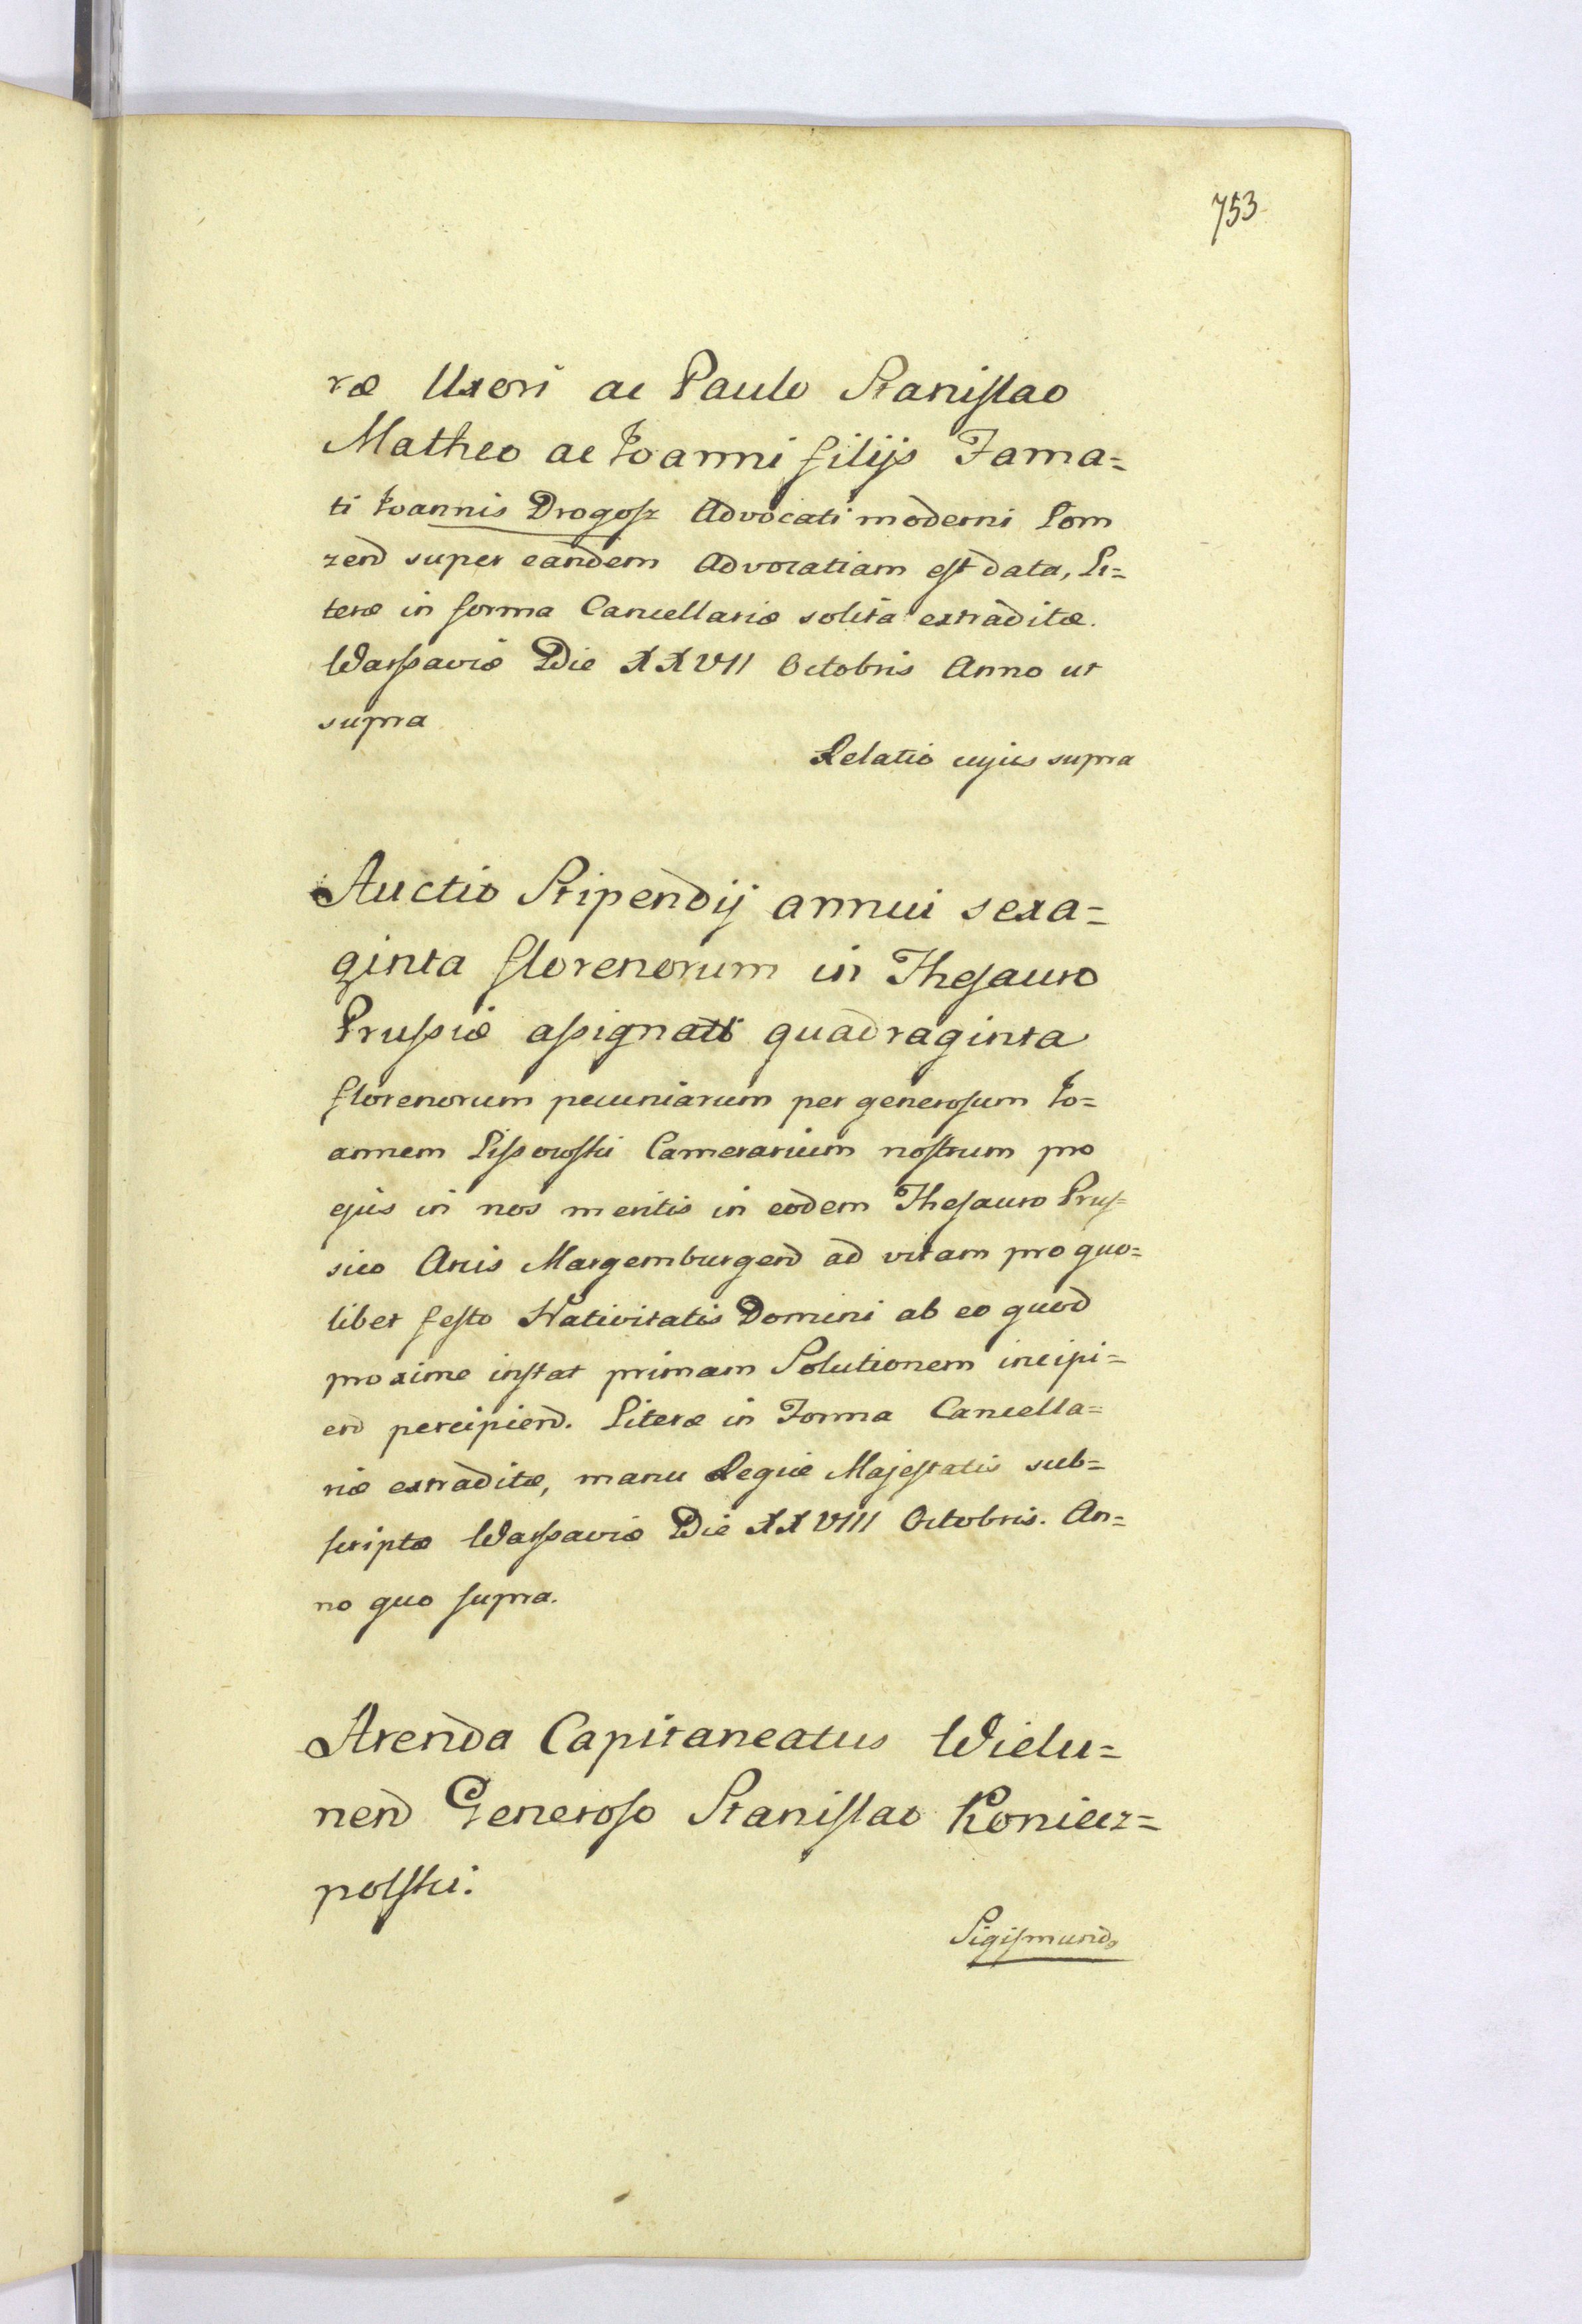 753
ræ Uxori ac Paulo Stanislao
Matheo ac Ioanni filijs Fama=
ti Ioannis Drogosz Advocati moderni Lom
zen̄d super eandem Advocatiam est data, Li=
teræ in forma Cancellariæ solita extraditæ.
Warssaviæ Die XXVII Octobris Anno ut
supra
Relatio cujus supra
Auctio Stipendij annui sexa=
ginta florenorum in Thesauro
Prussiæ assignati quadraginta
florenorum pecuniarum per generosum Io=
annem Lissowski Camerarium nostrum pro
ejus in nos meritis in eodem Thesauro Prus=
sico Arcis Margemburgend ad vitam pro quo=
libet festo Nativitatis Domini ab eo quod
proxime instat primam Solutionem incipi=
end percipiend. Literæ in Forma Cancella=
riæ extraditæ, manu Regiæ Majestatis sub=
scriptæ Warssaviæ Die XXVIII Octobris. An=
no quo supra.
Arenda Capitaneatus Wielu=
nend Generoso Stanislao Koniecz=
polski.
Sigismund9